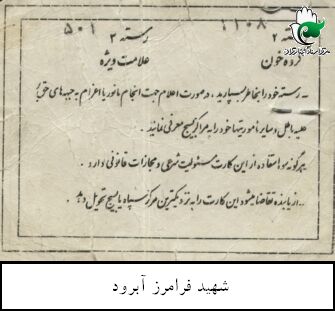 رسته ۲ ۱۱۰۸ رسته ۳ ۵۰۱
گروه خون علامت ویژه
- رسته خود را بخاطر بسپارید، در صورت اعلام جهت انجام مانور یا اعزام به جبهه های حق
علیه باطل و سایر مأموریتها خود را به مراکز بسیج معرفی نمائید.
هرگونه سوء استفاده از این کارت مسئولیت شرعی و مجازات قانونی دارد.
از یابنده تقاضا میشود این کارت را به نزدیکترین مرکز سپاه یا بسیج تحویل دهد.
شهید فرامرز آبرود